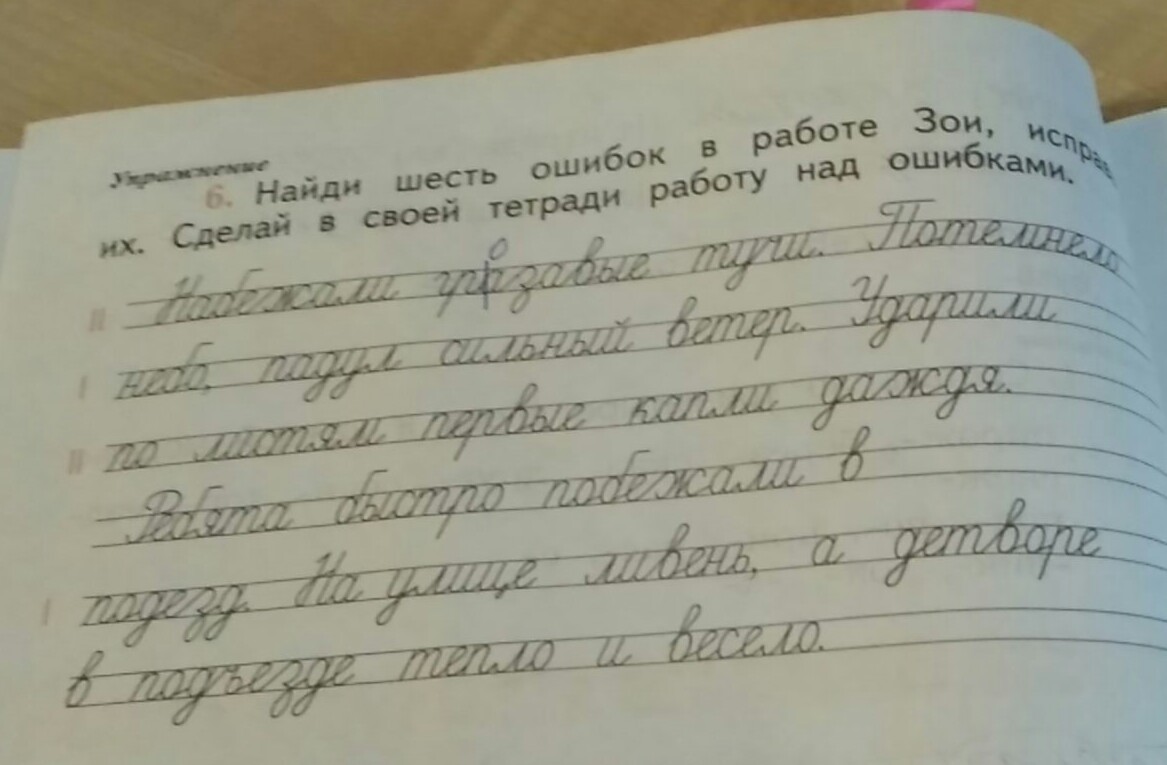 Упражнение
6. Найди шесть ошибок в работе Зои, исправ
их. Сделай в своей тетради работу над ошибками.
о
II Набежали гразавые тучи. Потемнело
I небо, падул сильный ветер. Ударили
II по листям первые капли даждя.
Ребята быстро побежали в
I подезд. На улице ливень, а детворе
в подъезде тепло и весело.